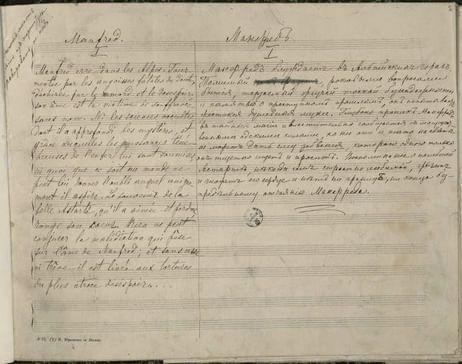 Manfred.
I
Manfred erre dans les Alpes. Tour-
menté par les angoisses fatales du doute,
déchiré par le remords et le désespoir,
son âme est la victime de souffrances
sans nom. Ni les sciences occultes,
dont il a approfondi les mystères et
grâce auxquelles les puissances téné-
breuses de l'enfer lui sont soumises,
ni quoi que ce soit au monde ne
peut lui donner l'oubli auquel unique-
ment il aspire. Le souvenir de la
belle Astarté, qu'il a aimée et perdue,
ronge son coeur. Rien ne peut
conjurer la malédiction qui pèse
sur l'âme de Manfred; et sans cesse
ni trêve il est livré aux tortures
du plus atroce désespoir....
Манфредъ
I
Манфредъ блуждаетъ въ Альпійскихъ горахъ.
Томимый роковыми вопросами
бытія, терзаемый жгучей тоской безнадежности
и памятью о преступномъ прошломъ, онъ испытываетъ
жестокія душевныя муки. Глубоко проникъ Манфредъ
въ тайны магіи и властительно сообщается съ могуще-
ственными адскими силами, но ни онѣ и ничто на свѣтѣ
не можетъ дать ему забвенія, котораго одного только
онъ тщетно ищетъ и проситъ. Воспоминаніе о погибшей
Астартѣ, нѣкогда имъ страстно любимой, грызетъ
и гложетъ его сердце и нѣтъ ни границъ, ни конца без-
предѣльному отчаянію Манфреда.